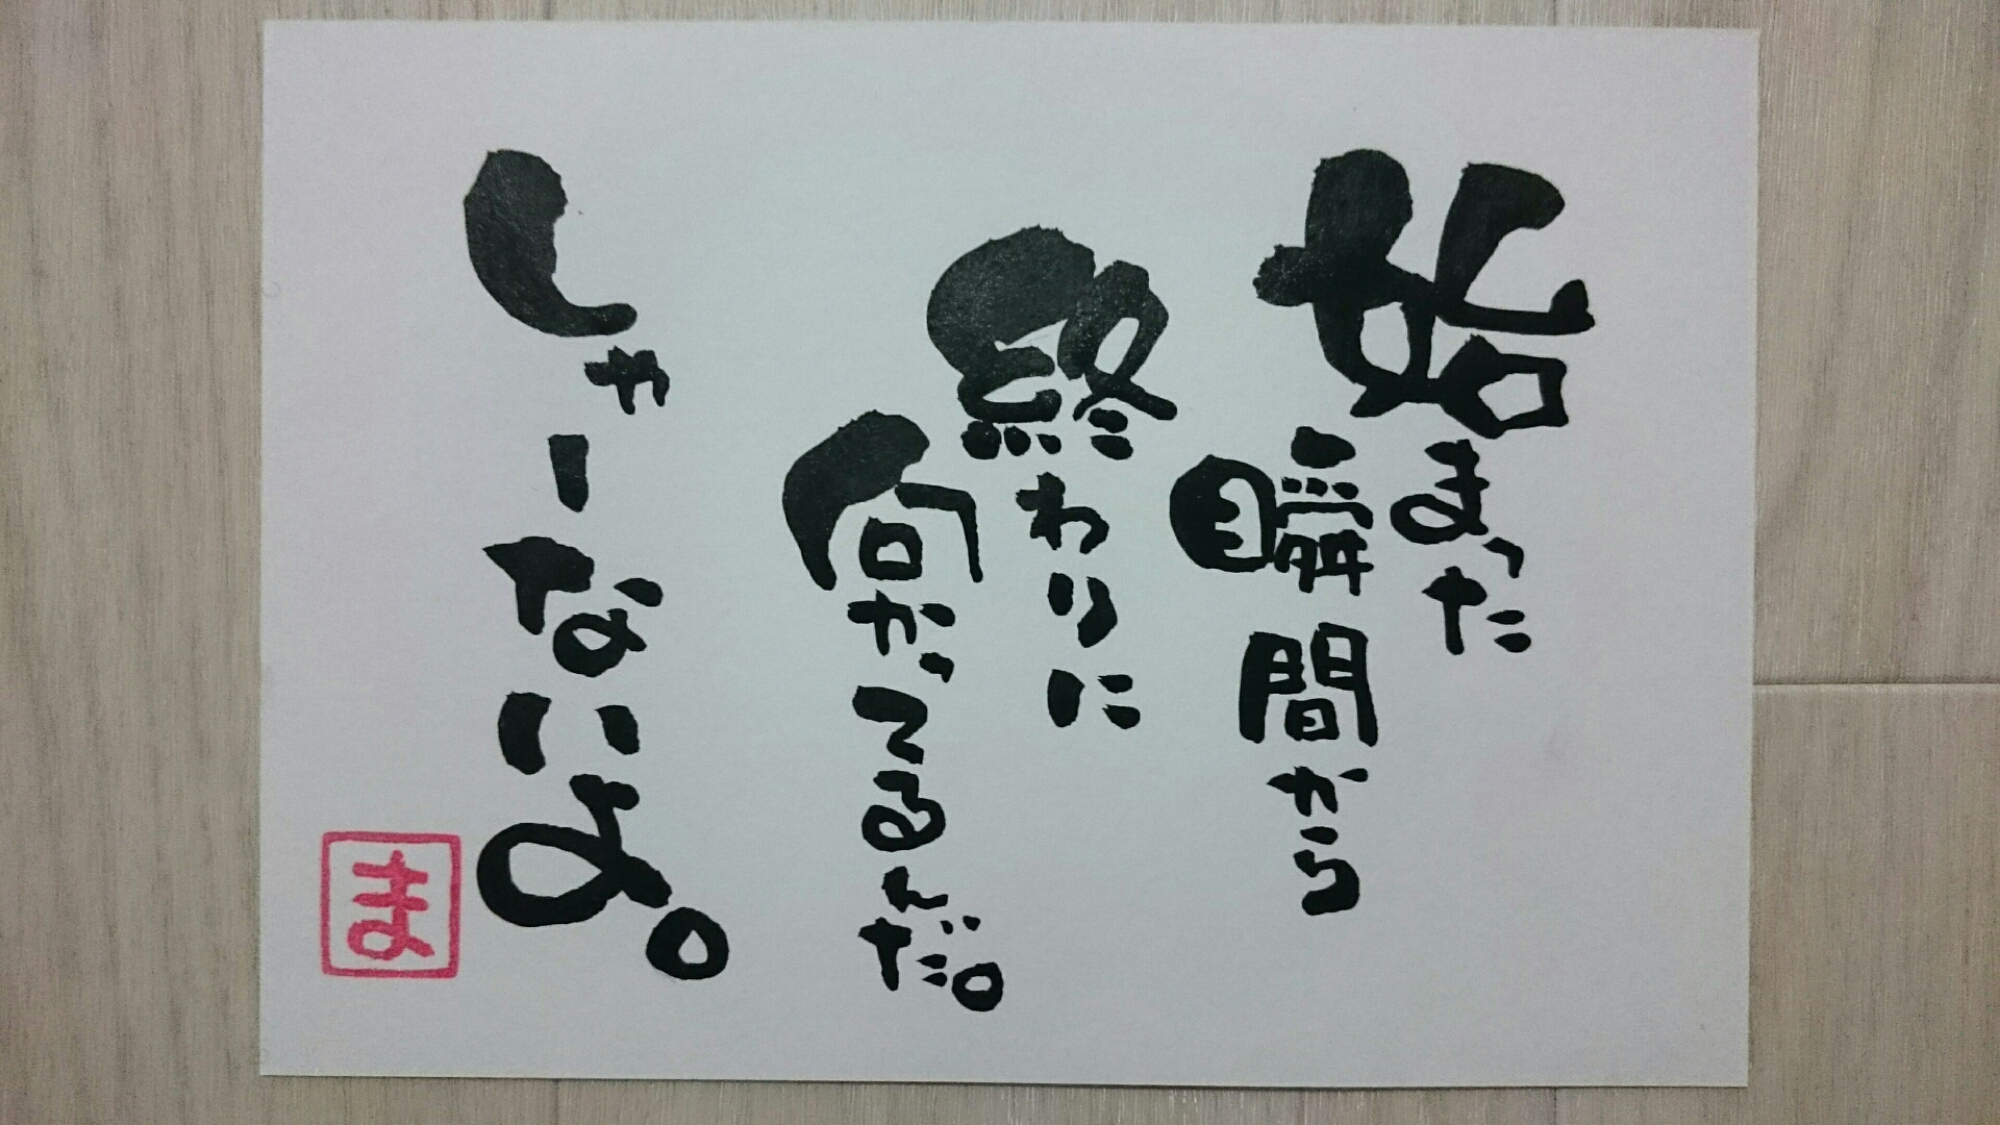 始まった
瞬間から
終わりに
向かってるんだ。
しゃーないよ。
ま